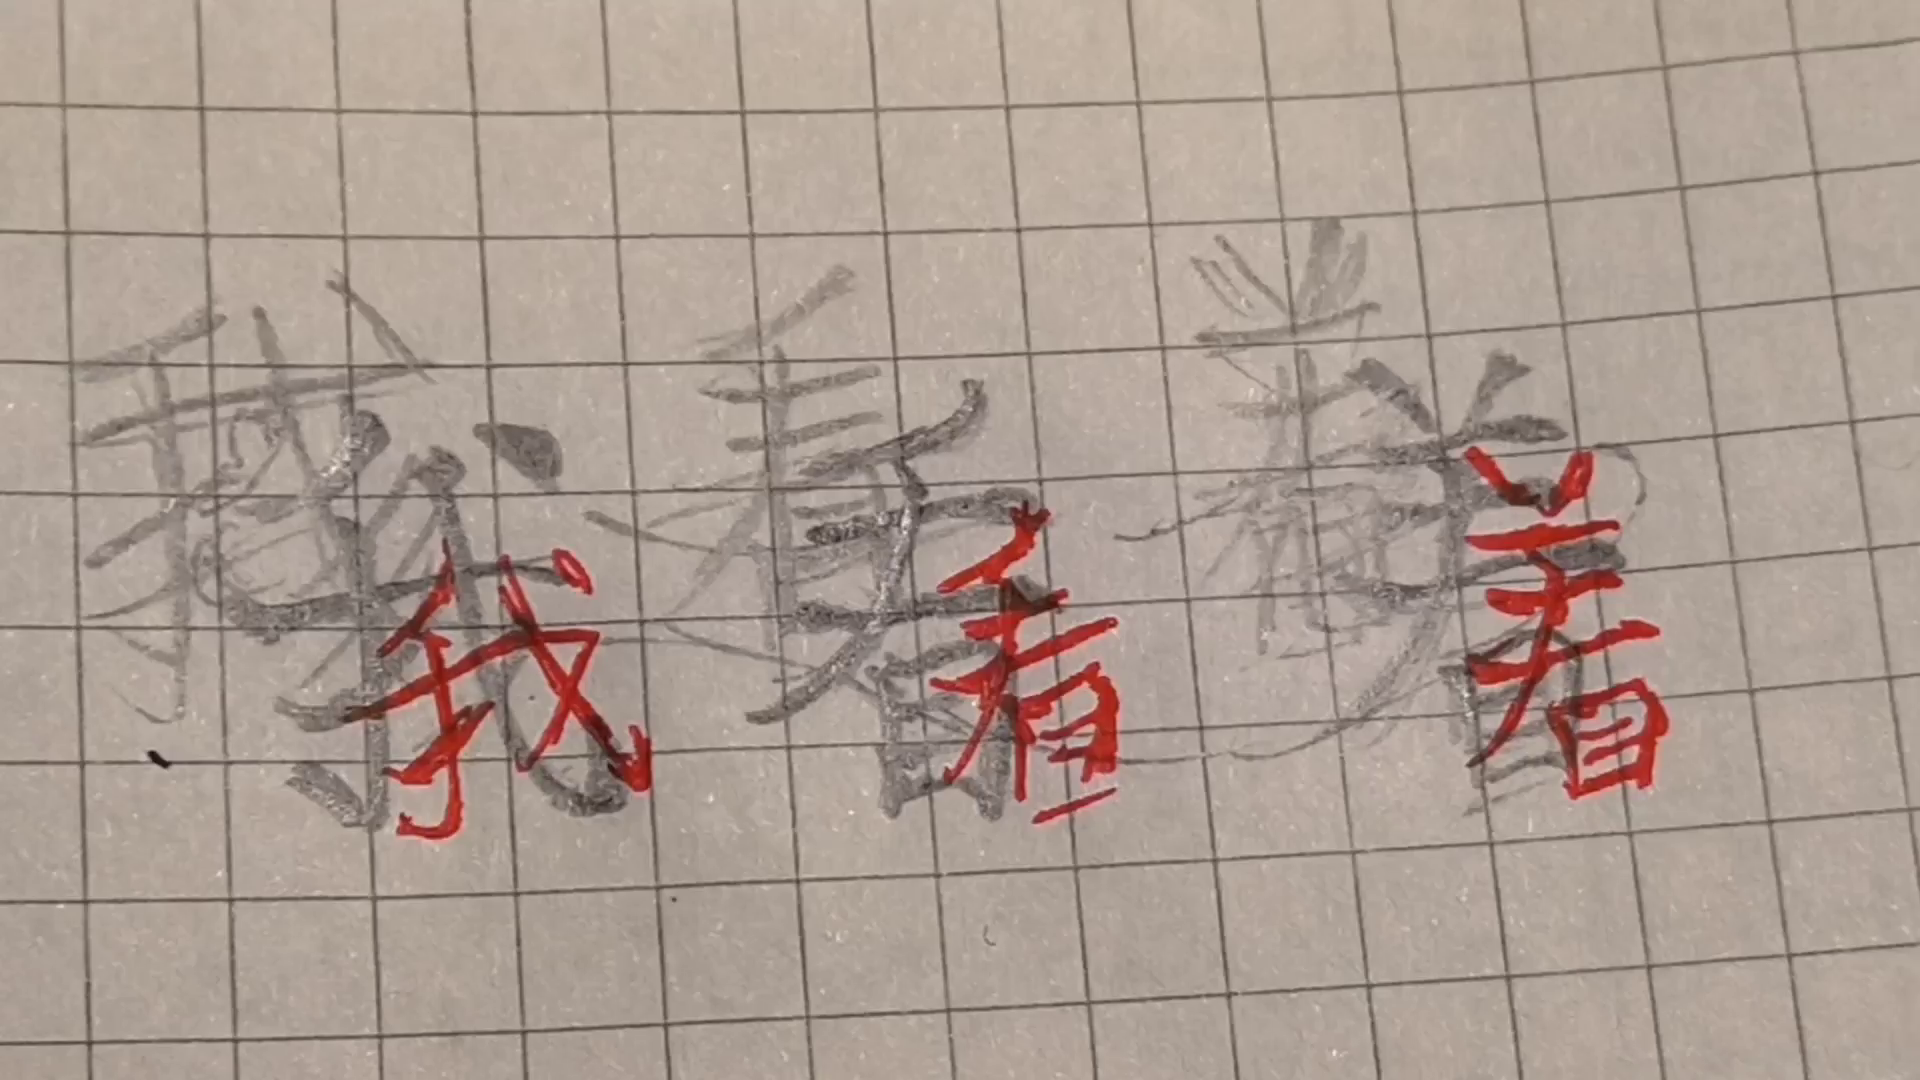 我看着